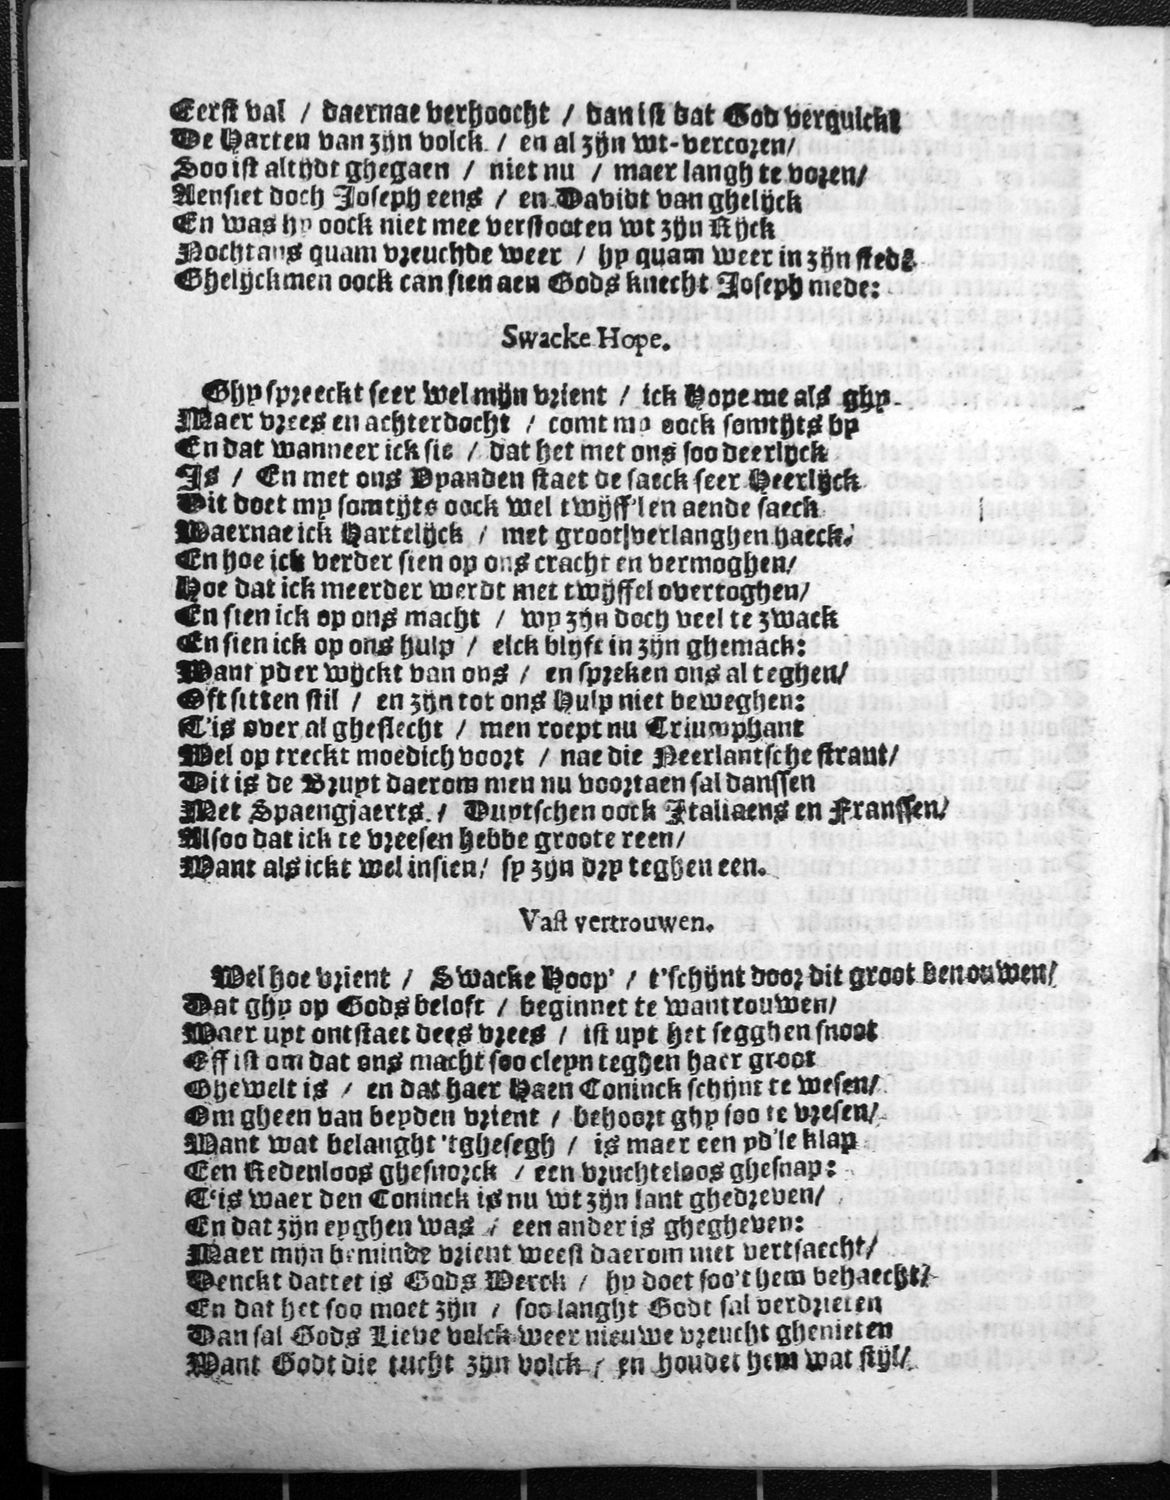 Eerst val / daernae verhoocht / dan ist dat God verquickt
De Harten van zijn volck / en al zijn wt-vercoren/
Soo ist altijdt ghegaen / niet nu / maer langh te voren/
Aensiet doch Joseph eens / en Davidt van ghelijck
En was hy oock niet mee verstooten wt zijn Rijck
Nochtans quam vreuchde weer / hy quam weer in zijn stede
Ghelijckmen oock can sien aen Gods knecht Joseph mede:
Swacke Hope.
Ghy spreeckt seer wel mijn vrient / ick Hope me als ghy
Maer vrees en achterdocht / comt my oock somtijts by
En dat wanneer ick sie / dat het met ons soo deerlyck
Is / En met ons Vyanden staet de saeck seer Heerlijck
Dit doet my somtijts oock wel twijff'len aende saeck
Waernae ick Hartelijck / met groot verlanghen haeck.
En hoe ick verder sien op ons cracht en vermoghen/
Hoe dat ick meerder werdt met twijffel overtoghen/
En sien ick op ons macht / wy zijn doch veel te zwack
En sien ick op ons hulp / elck blyft in zijn ghemack:
Want yder wijckt van ons / en spreken ons al teghen/
Oft sitten stil / en zijn tot ons Hulp niet beweghen:
T'is over al gheslecht / men roept nu Triumphant
Wel op treckt moedich voort / nae die Neerlantsche strant/
Dit is de Bruyt daerom men nu voortaen sal danssen
Met Spaengjaerts / Duytschen oock Italiaens en Franssen/
Alsoo dat ick te vreesen hebbe groote reen/
Want als ickt wel insien/ sy zijn dry teghen een.
Vast vertrouwen.
Wel hoe vrient / Swacke Hoop' / t'schijnt door dit groot benouwen/
Dat ghy op Gods beloft / beginnet te wantrouwen/
Waer uyt ontstaet dees vrees / ist uyt het segghen snoot
Eff ist om dat ons macht soo cleyn teghen haer groot
Ghewelt is / en dat haer Haen Coninck schijnt te wesen/
Om gheen van beyden vrient / behoort ghy soo te vresen/
Want wat belanght 'tghesegh / is maer een yd'le klap
Een Redenloos ghesnorck / een vruchteloos ghesnap:
T'is waer den Coninck is nu wt zijn lant ghedreven/
En dat zijn eyghen was / een ander is ghegheven:
Maer mijn beminde vrient weest daerom niet vertsaecht/
Denckt dattet is Gods Werck / hy doet soo't hem behaecht/
En dat het soo moet zijn / soo langht Godt sal verdrieten
Dan sal Gods Lieve volck weer nieuwe vreucht ghenieten
Want Godt die tucht zijn volck / en houdet hem wat stijl/